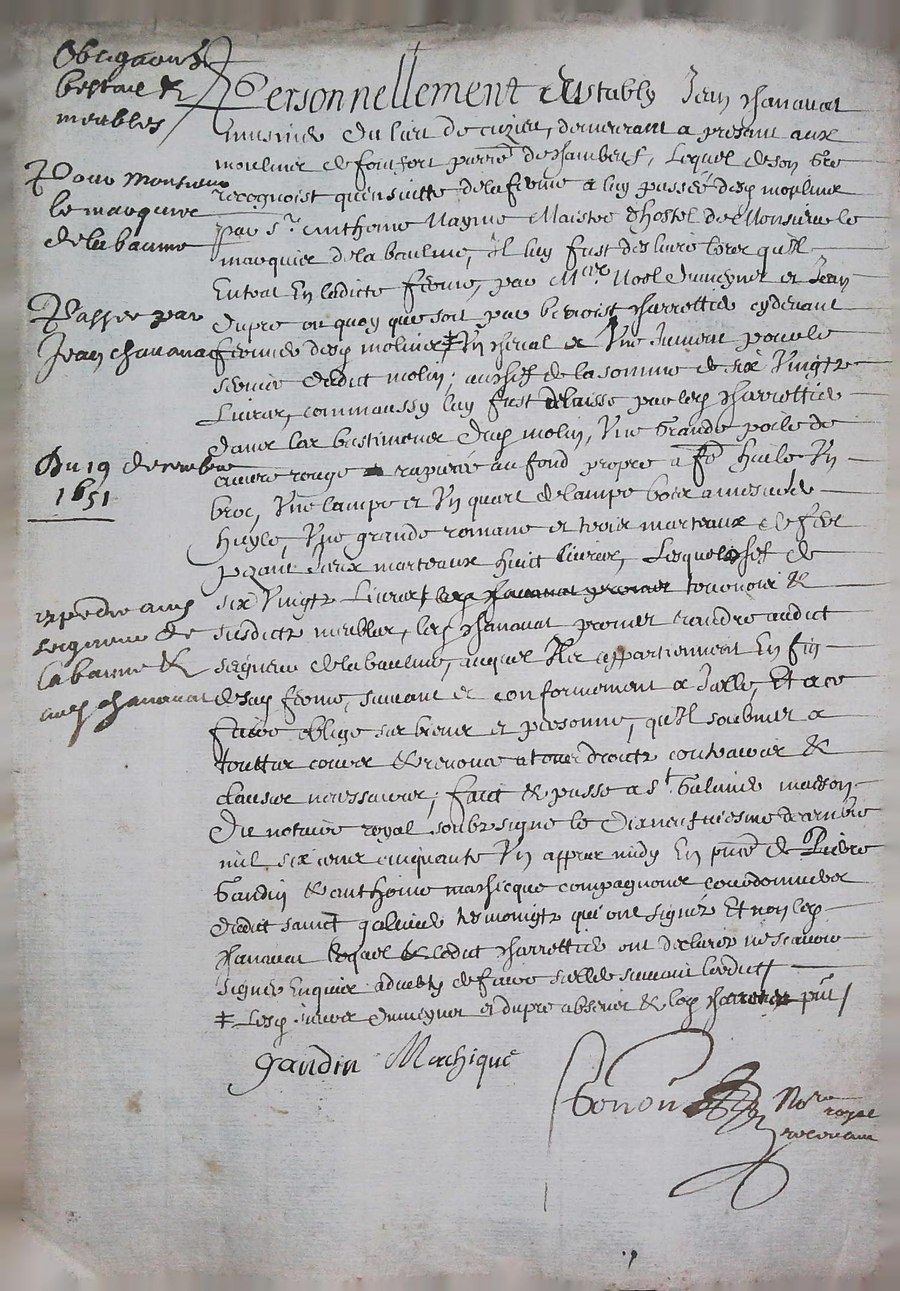 Obligaon de
bestail &
meubles
Pour Monsieur
le marquis
de la baume
Passee par
Jean chanavat
Du 19 decembre
1651
expedie aud
seigneur de
la baume &
aud chanavat
Personnellement estably Jean Chanavat
musnier du lieu de cuzieu, demeurant a presant aux
moulins de fonfort lequel de son gre
recognoist qu'ensuitte de la ferme a luy passée desd moulins
par sr. Anthoine Mayme Maistre d'hostel de Monsieur le
marquis de la baulme, Il luy fust deslivré lors qu'Il
Entrat En ladicte ferme, par Noel et Jean
dupre ou quoy que soit par benoist Charrettier cydevant
fermier desd molins ǂ Un cheval et Une Jument pour le
service dudict molin; de la somme de six Vingtz
Livres, comm'aussy luy fust delaissé par led Charrettier
dans les bastimens dud molin, Une Grande poile de
cuivre rouge rapiecée au fond propre a fe huile Un
broc, Une lampe et Un quart de lampe bois a mesurer
Huyle Une grande romane et trois marteaux de fer
pezant deux marteaux huit livres, Lesquels de
six Vingtz Livres & 
susdictz meubles, led Chanavat promet randre audict
seigneur de la baulme, auquel Ilz appartiennent En fin
de sad ferme, suivant et conformement a Icelle, Et a ce
faire oblige ses biens et personne, qu'Il soubmet a
touttes cours & renonce a tous droictz contraires &
clauses necessaires; faict & passé a st Galmier maison
Du notaire royal soubzsigné le Dixneufviesme decembre
mil six cens cinquante Un appres midy En pnce de Pierre
Gandin & anthoine massicque compagnons cordonniers
dudict sainct galmier tesmoingtz qui ont signéz Et non led
Chanavat lequel & ledict Charrettier ont declarés ne scavoir
signer Enquis & de faire suivant l'ordce
ǂ Lesd et dupre absens & led pnt
gandin Machique
Nore
royal